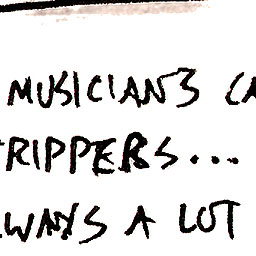 MUSICIANS CA
TRIPPERS...
LWAYS A LOT